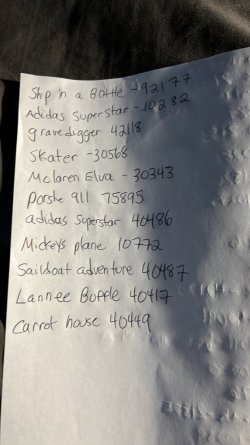 Ship in a Bottle - 92177
Adidas Superstar - 10282
gravedigger 42118
Skater - 30568
Mclaren Elva - 30343
Porshe 911 75895
adidas Superstar 40486
Mickeys plane 10772
Sailboat adventure 40487
Lannee Bopple 40417
Carrot house 40449